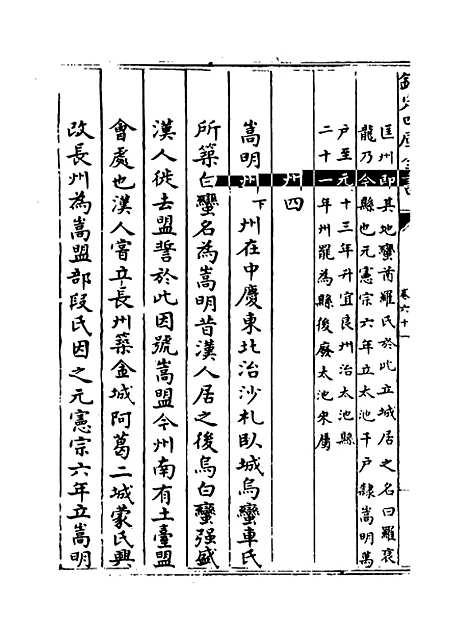 欽定四庫全書
卷六十一
匡州即其地蠻酋羅氏於此立城居之名曰羅裒
龍乃今縣也元憲宗六年立太池千戶隸嵩明萬
戶至元十三年升宜良州治太池縣
二十一年州罷為縣後廢太池來屬
州四
嵩明州下州在中慶東北治沙札臥城烏蠻車氏
所築白蠻名為嵩明昔漢人居之後烏白蠻强盛
漢人徙去盟誓於此因號嵩盟今州南有土臺盟
會處也漢人嘗立長州築金城阿葛二城蒙氏興
改長州為嵩盟部段氏因之元憲宗六年立嵩明